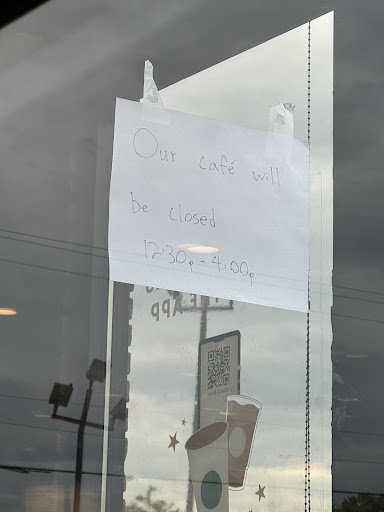 Our café will
be closed
12:30p - 4:00p
APP